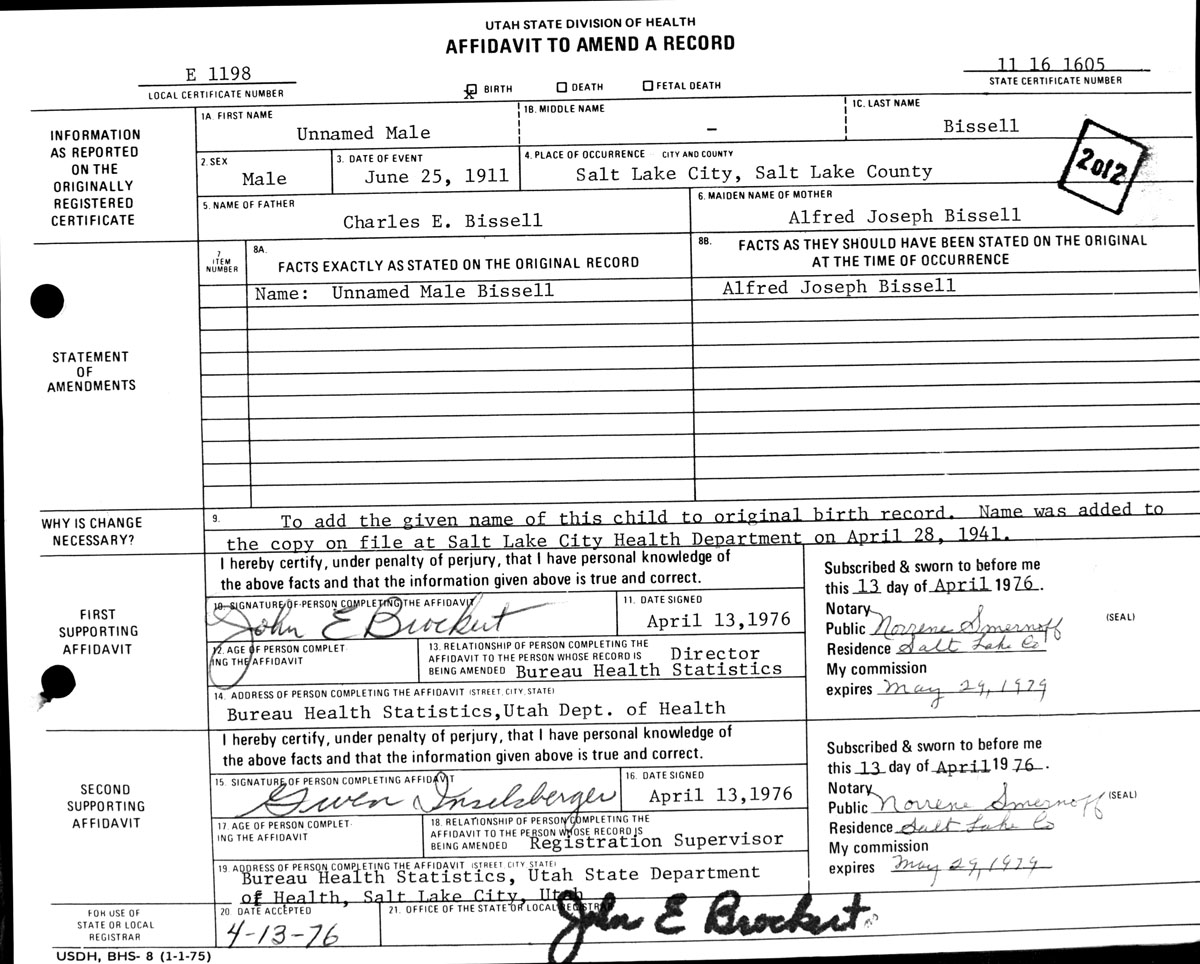 UTAH STATE DIVISION OF HEALTH
AFFIDAVIT TO AMEND A RECORD
E 1198
LOCAL CERTIFICATE NUMBER
BIRTH DEATH FETAL DEATH
11 16 1605
STATE CERTIFICATE NUMBER
INFORMATION
AS REPORTED
ON THE
ORIGINALLY
REGISTERED
CERTIFICATE
1A. FIRST NAME
Unnamed Male
1B. MIDDLE NAME
–
1C. LAST NAME
Bissell
2. SEX
Male
3. DATE OF EVENT
June 25, 1911
4. PLACE OF OCCURRENCE CITY AND COUNTY
Salt Lake City, Salt Lake County
2012
5. NAME OF FATHER
Charles E. Bissell
6. MAIDEN NAME OF MOTHER
Alfred Joseph Bissell
STATEMENT
OF
AMENDMENTS
7
ITEM
NUMBER
8A.
FACTS EXACTLY AS STATED ON THE ORIGINAL RECORD
8B.
FACTS AS THEY SHOULD HAVE BEEN STATED ON THE ORIGINAL
AT THE TIME OF OCCURRENCE
Name: Unnamed Male Bissell
Alfred Joseph Bissell
WHY IS CHANGE
NECESSARY?
9. To add the given name of this child to original birth record. Name was added to
the copy on file at Salt Lake City Health Department on April 28, 1941.
FIRST
SUPPORTING
AFFIDAVIT
I hereby certify, under penalty of perjury, that I have personal knowledge of
the above facts and that the information given above is true and correct.
10. SIGNATURE OF PERSON COMPLETING THE AFFIDAVIT
John E Brockert
11. DATE SIGNED
April 13,1976
12. AGE OF PERSON COMPLET-
ING THE AFFIDAVIT
13. RELATIONSHIP OF PERSON COMPLETING THE
AFFIDAVIT TO THE PERSON WHOSE RECORD IS Director
BEING AMENDED Bureau Health Statistics
14. ADDRESS OF PERSON COMPLETING THE AFFIDAVIT (STREET, CITY, STATE)
Bureau Health Statistics,Utah Dept. of Health
Subscribed & sworn to before me
this 13 day of April 1976.
Notary
Public Norrene Smernoff (SEAL)
Residence Salt Lake Co
My commission
expires May 29, 1979
SECOND
SUPPORTING
AFFIDAVIT
I hereby certify, under penalty of perjury, that I have personal knowledge of
the above facts and that the information given above is true and correct.
15. SIGNATURE OF PERSON COMPLETING AFFIDAVIT
Gwen Inselsberger
16. DATE SIGNED
April 13,1976
17. AGE OF PERSON COMPLET-
ING THE AFFIDAVIT
18. RELATIONSHIP OF PERSON COMPLETING THE
AFFIDAVIT TO THE PERSON WHOSE RECORD IS
BEING AMENDED Registration Supervisor
19. ADDRESS OF PERSON COMPLETING THE AFFIDAVIT (STREET, CITY, STATE)
Bureau Health Statistics, Utah State Department
of Health, Salt Lake City, Utah
Subscribed & sworn to before me
this 13 day of April 1976.
Notary
Public Norrene Smernoff (SEAL)
Residence Salt Lake Co
My commission
expires May 29, 1979
FOR USE OF
STATE OR LOCAL
REGISTRAR
20. DATE ACCEPTED
4-13-76
21. OFFICE OF THE STATE OR LOCAL REGISTRAR
John E Brockert
USDH, BHS- 8 (1-1-75)